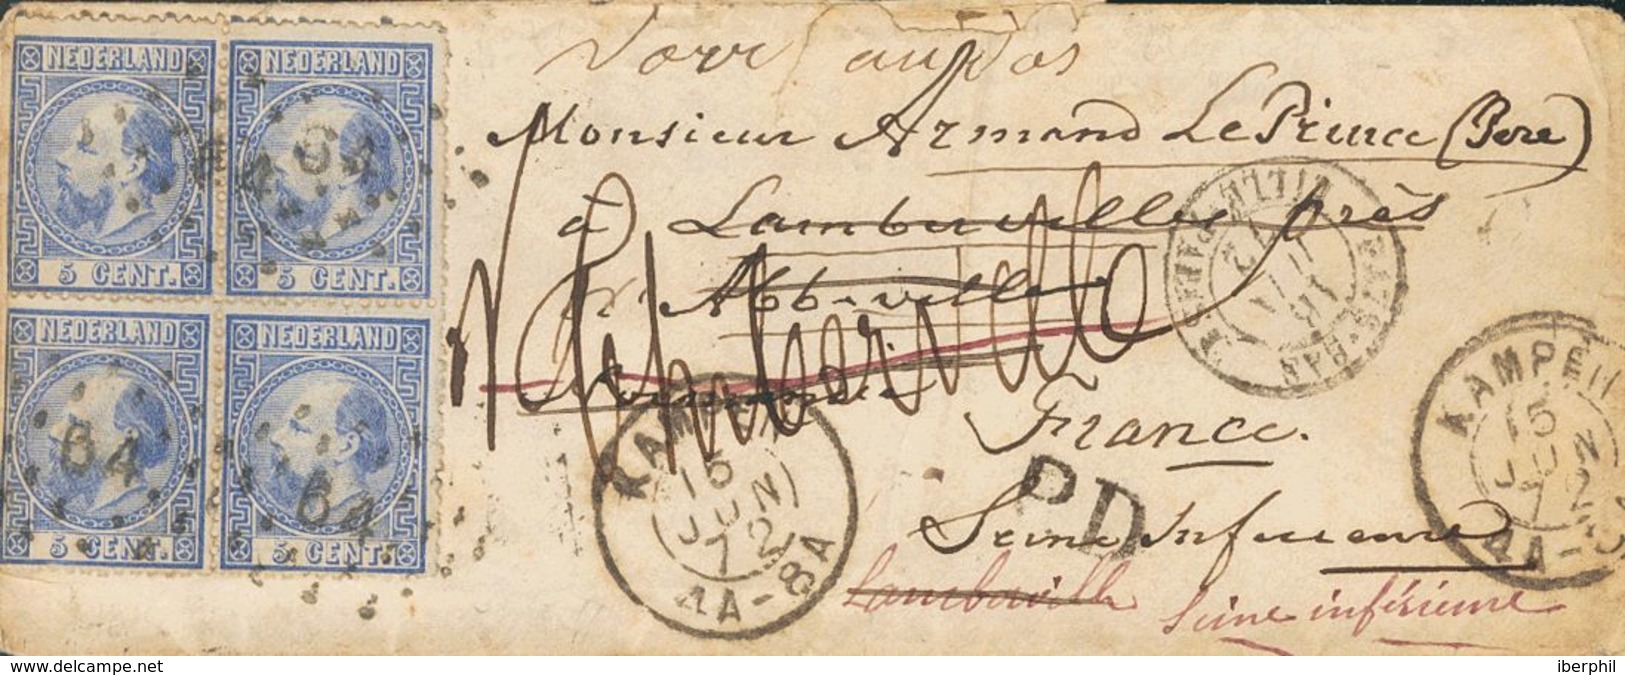 NEDERLAND NEDERLAND
5 CENT. 5 CENT.
NEDERLAND NEDERLAND
5 CENT. 5 CENT.
64
64 64
Voir au dos
Monsieur Armand LePrince (Pere)
à Lamberville près
Abbeville
France.
Seine Inferieure
Lamberville
Seine inférieure
PD
KAMPEN
15
JUN
72
4A-8A
KAMPEN
15
JUN
72
4A-8
delcampe.net
iberphil